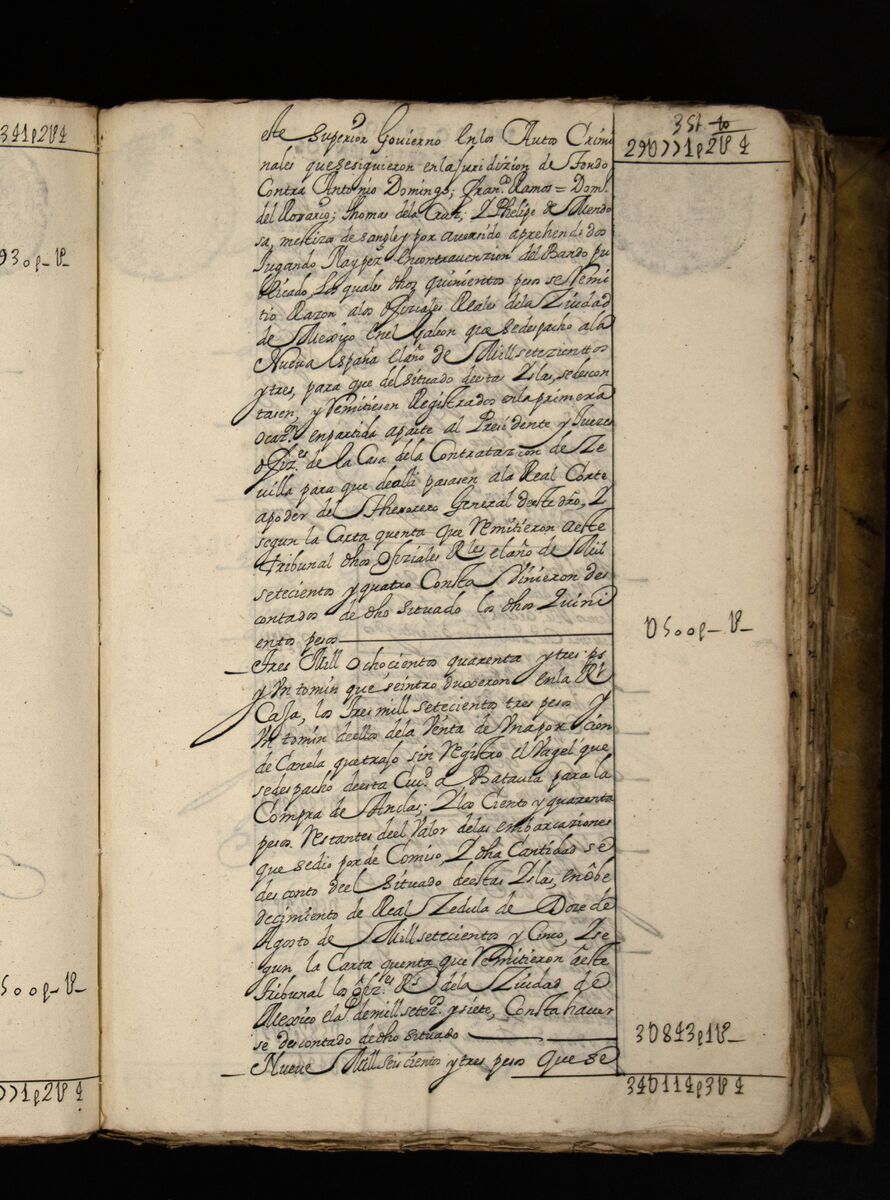 341p2U4
930p-U-
500p-U-
351 40
29U771p2U4
este Superior Govierno en los Autos Crimi
nales que se siguieron en la Juridizion de tondo
Contra Antonio Domingo; Franco Ramos = Domo
del Rosario; thomas dela Cruz; Y Phelipe de Mendo
sa, mestizos de sangley por averido aprehendidos
Jugando Naypes encontravenzion del Bando pu
blicado, Los quales dhos quinientos pesos se Remi
tio Razon alos Ofiziales Reales dela Ziudad
de Mexico enel Galeon que sedespacho ala
Nueva españa elaño de Mill setezienttos
ytres, para que del situado destas Yslas, sedescon
tasen, y Remitiesen Registrados enla primera
ocazn enpartida aparte al Presidente y Juezes
ofizes de la Casa dela Contratazion de Ze
villa para que dealli pasasen ala Real Corte
apoder del thesorero General deste dro, Y
segun la Carta quenta que Remitieron aeste
tribunal dhos ofiziales Rles elaño de Mill
setecientos y quatro Consta Vinieron des
contados de dho situado los dhos Quini
entos pesos
U500p-U-
Tres Mill ochocientos quarenta ytres ps
y Un tomin que seintroduxeron enla Rl
Caja, los tres mill setecientos tres pesos y
Un tomin deellos dela Venta de Una porcion
de Canela quetrajo sin Registro el Vagel que
sedespacho desta Ciud a Batavia para la
Compra de Anclas; Ylos Ciento y quarenta
pesos Restantes deel Valor delas embarcaziones
que sedio por de Comiso, Y dha Cantidad se
desconto deel situado deestas Yslas, enobe
decimiento de Real Zedula de Doze de
Agosto de Mill setecientos y Cinco, Yse
gun la Carta quenta que Remitieron aeste
tribunal los ofizes Rs dela Ziudad de
Mexico elaº demill setezos ysiete, Consta haver
se descontado dedho situado
3U843p1U-
Nueve Mill seiscientos ytres pesos que se
771p2U4
34U114p3U4